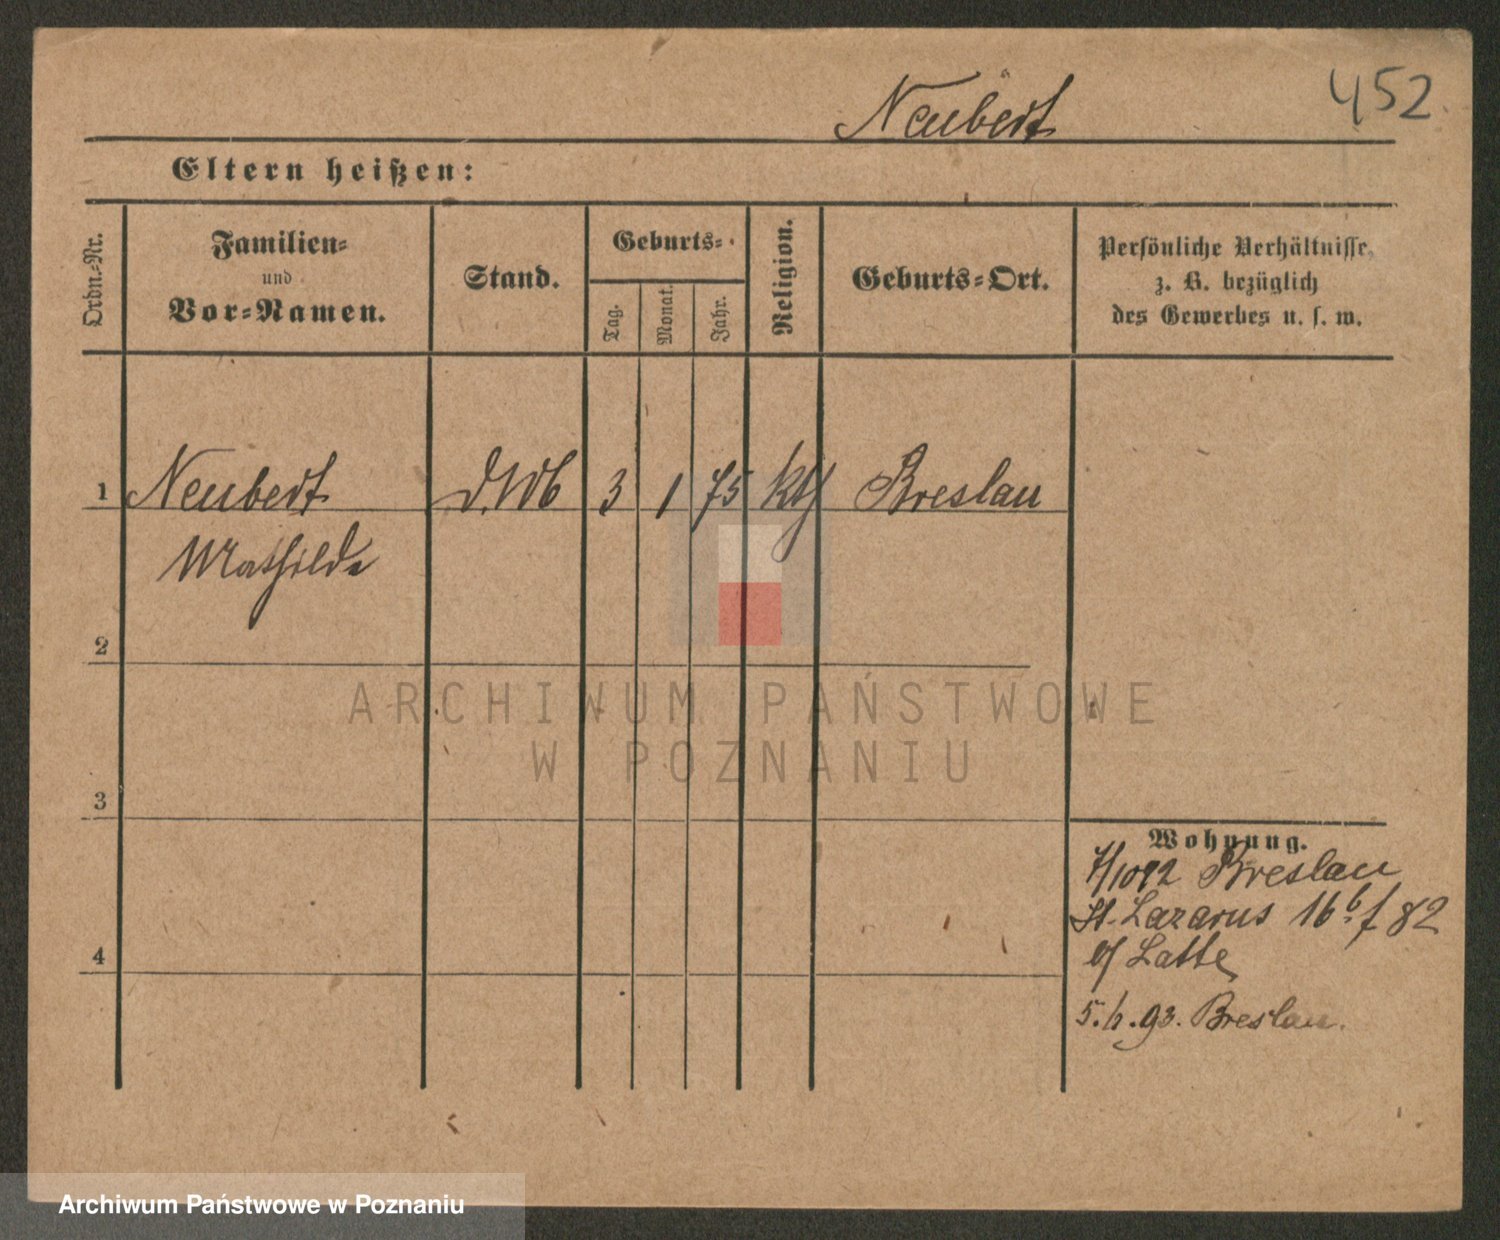 Neubert
452.
Eltern heißen:
Ordn.-Nr.
Familien-
und
Vor-Namen.
Stand.
Geburts-
Tag.
Monat.
Jahr.
Religion.
Geburts-Ort.
Persönliche Verhältnisse,
z. B. bezüglich
des Gewerbes u. s. w.
1 Neubert 3 1 75 kth Breslau
Mathilde
2
ARCHIWUM PAŃSTWOWE
W POZNANIU
3
Wohnung.
7/1092 Breslau
St. Lazarus 16 b. f 82
b/ Latte
93. Breslau.
4
Archiwum Państwowe w Poznaniu